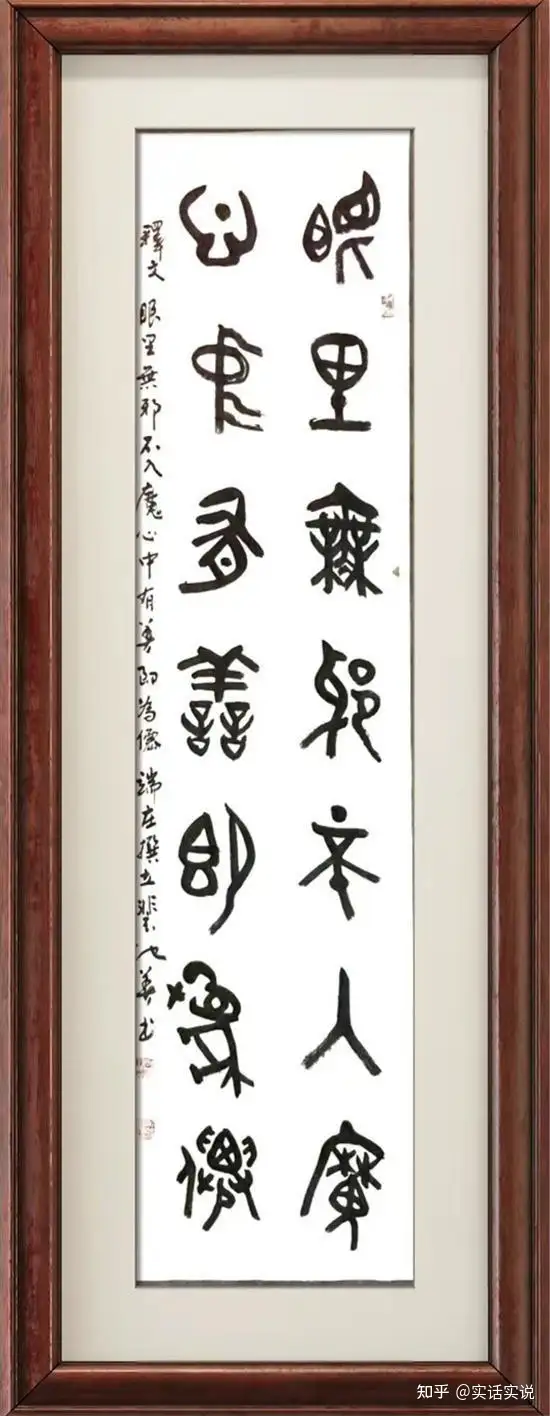 眼里無邪不入魔
心中有善即為僊
釋文 眼里無邪不入魔心中有善即為僊 撰 书
知乎 @实话实说